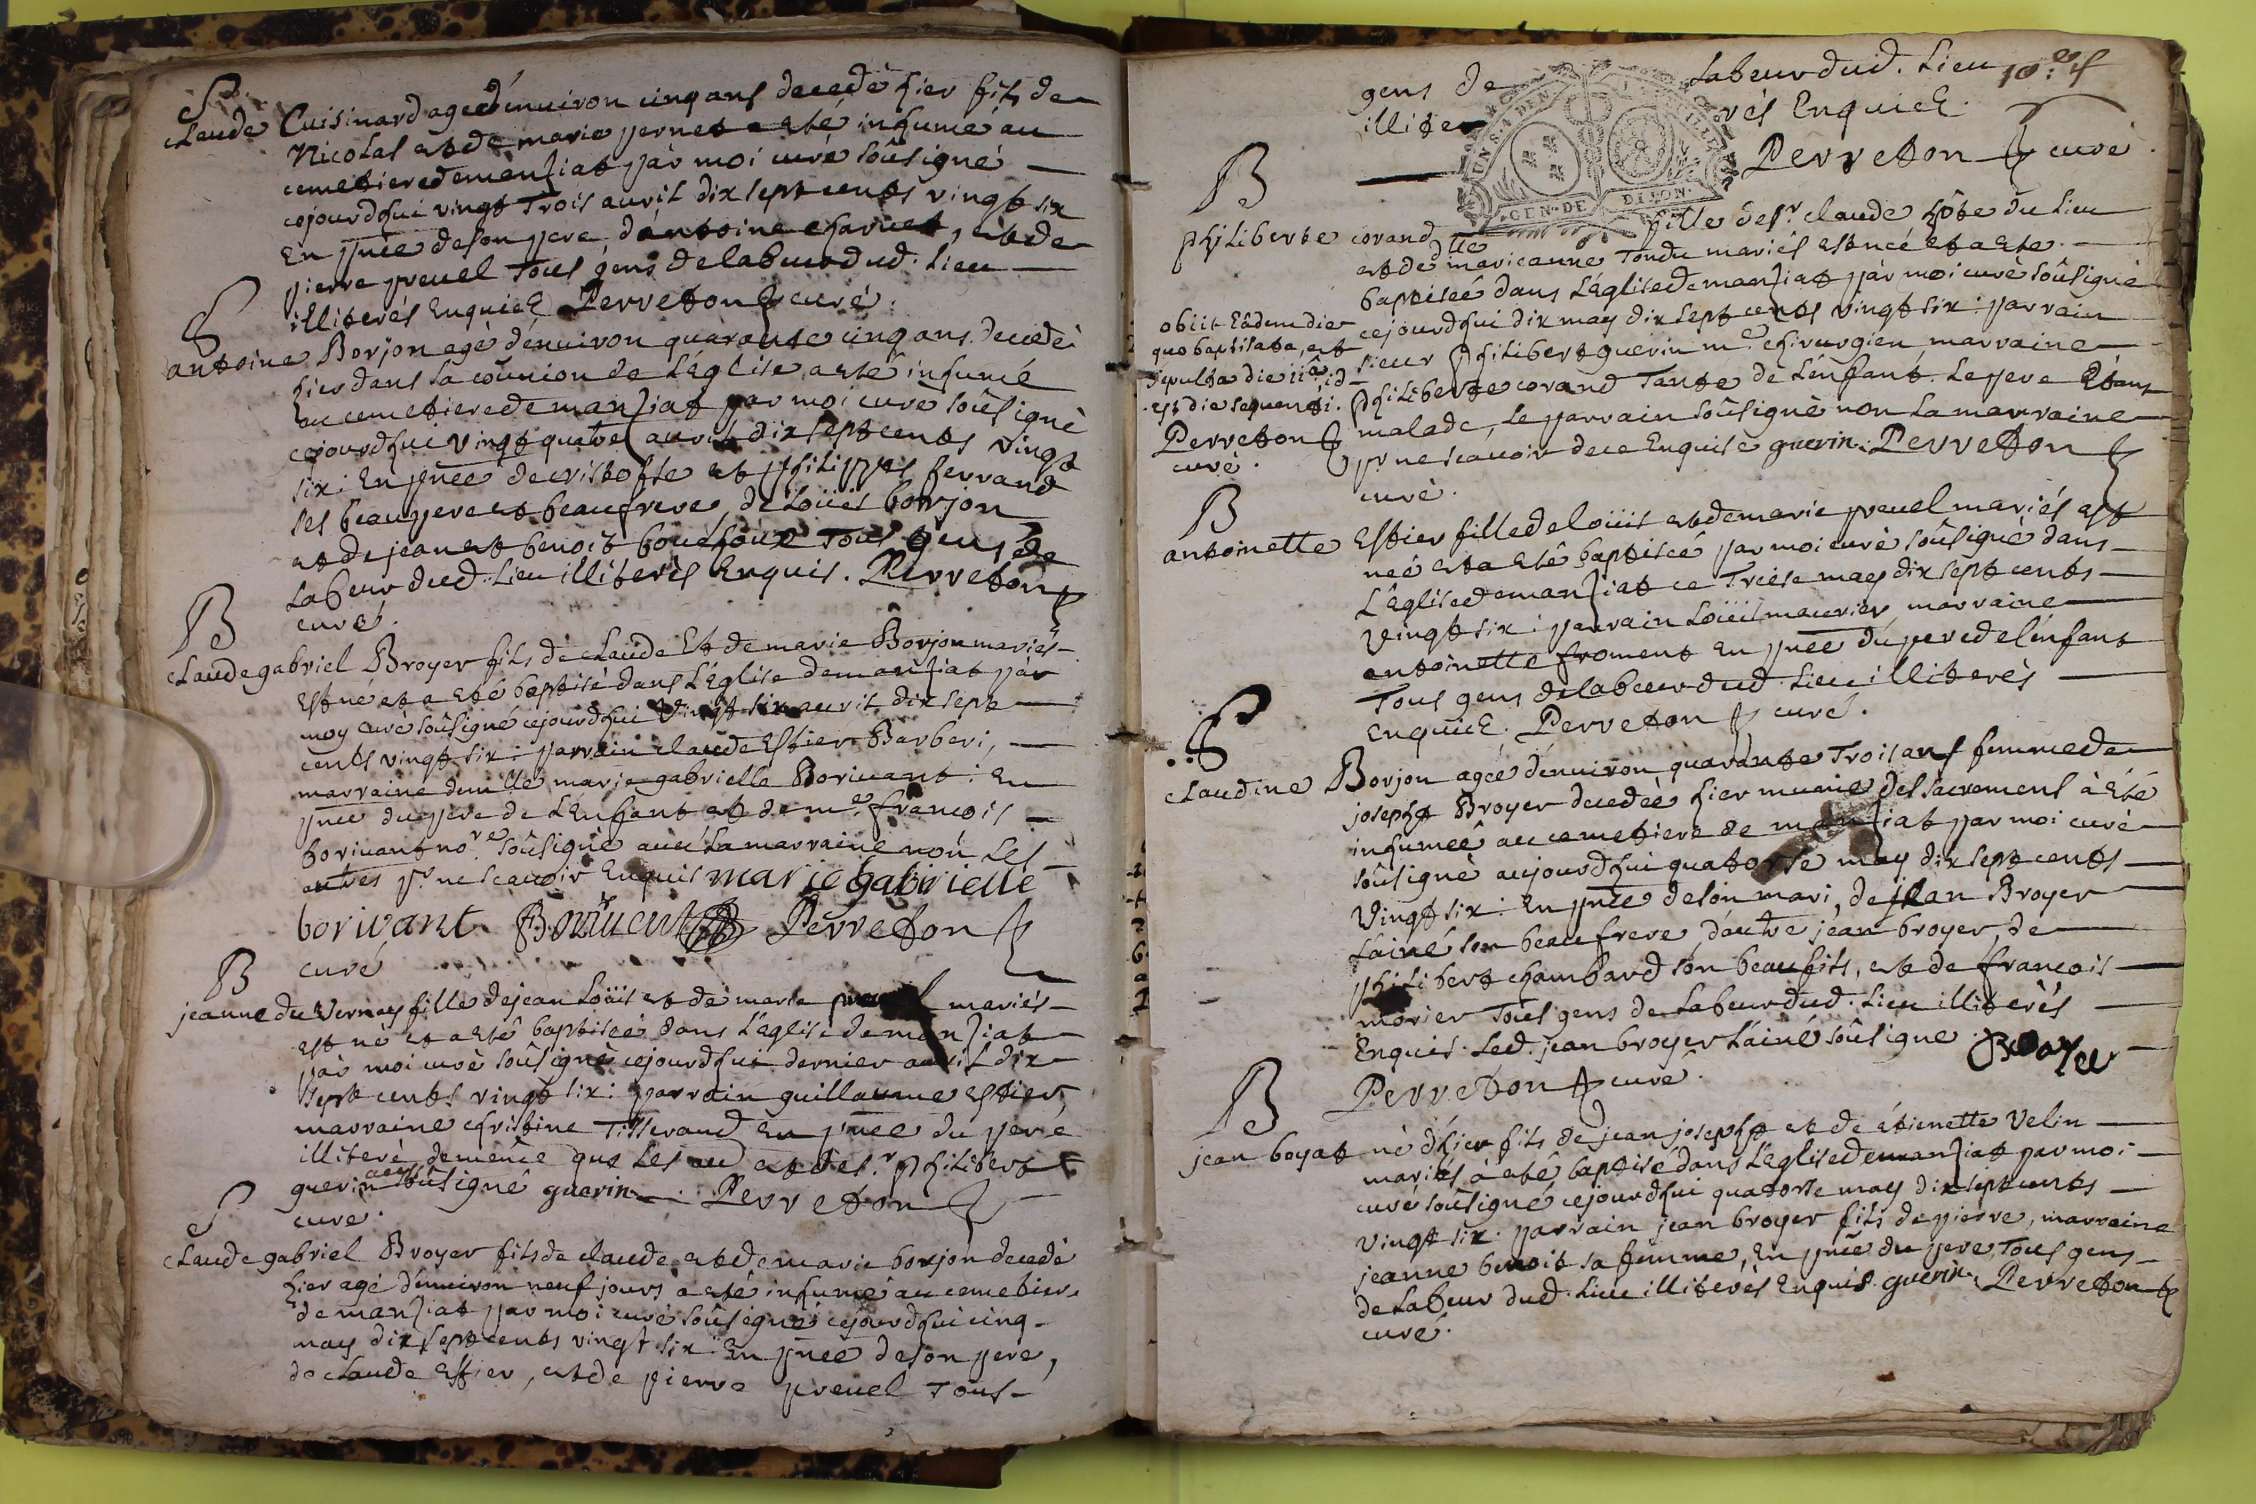 S
claude Cuisinard agé d'enuiron cinq ans decedé hier fils de
Nicolas et de marie pernet a eté inhumé au
cemetiere de manziat par moi curé soûsigné
cejourdhui vingt trois auril dix sept cents vingt six
En pñce de son pere, d'antoine charuet, et de
pierre preuel Tous gens de labeur dud. Lieu
illiterés Enquis Perreton curé.
S
antoine Borjon agé d'enuiron quarante cinq ans decedé
hier dans la coûnion de L'église, a eté inhumé
au cemetiere de manziat par moi curé soûsigné
cejourdhui vingt quatre auril dix sept cents vingt
six: En pñce de cristofle et philippes ferrand
ses beaupere et beaufrere, de Loüis borjon
et de jean et benoit bouchoux Tous gens de
Labeur dud. Lieu illiterés Enquis. Perreton
curé.
B
claude gabriel Broyer fils de claude Et de marie Borjon mariés
Est né et a eté baptisé dans L'Eglise de manziat par
moy curé soûsigné cejourdhui Vingt six auril dix sept
cents vingt six: parrain claude Estier Barberi,
marraine demlle marie gabrielle Boriuant: En
pñce du pere de L'Enfant et de me. francois
boriuant nore. soûsigné auec la marraine non Les
autres pr. ne scauoir Enquis marie gabrielle
borivant. Boriuent Perreton
curé
B
jeanne du Vernay fille de jean Loüis et de marie preuel mariés
est né et a eté baptiseé dans L'eglise de manziat
par moi curé soûsigné cejourdhui dernier auril dix
sept cents vingt six: parrain guillaume Estier,
marraine christine Tisserand En pñce du pere
illiteré, de mème que Les aud et de sr. philibert
guerin aussi soûsigné guerin. Perreton
curé.
S
claude gabriel Broyer fils de claude et de marie borjon decedé
hier agé d'enuiron neuf jours a eté inhumé au cemetiere
de manziat par moi curé soûsigné cejourdhui cinq
may dix sept cents vingt six En pñce de son pere,
de claude Estier, et de pierre preuel Tous
gens de Labeur dud. Lieu
illiterés Enquis.
Perreton curé
GEN. DE DIJON.
B
philiberte corand fille de sr. claude hôte du Lieu
et de dlle marieanne Tondu mariés est neé et a eté
baptiseé dans L'église de manziat par moi curé soûsigné
cejourdhui dix may dix sept cents vingt six: parrain
sieur philibert guerin me. chirurgien marraine
philiberte corand Tante de L'enfant. Le pere Etant
malade, Le parrain soûsigné non La marraine
pr. ne scauoir de ce Enquise guerin. Perreton
curé.
obiit Eâdem die
quo baptisata, et
sepulta die iiâ. id
est die sequenti.
Perreton
curé.
B
antoinette Estier fille de loüis et de marie preuel mariés est
neé et a eté baptiseé par moi curé soûsigné dans
L'Eglise de manziat ce Treise may dix sept cents
Vingt six: parrain Loüis maurier marraine
antoinette froment En pñce du pere de l'énfant
Tous gens de labeur dud. Lieu illiterés
Enquis. Perreton curé.
S
claudine Borjon ageé d'enuiron quarante Trois ans femme de
joseph Broyer decedeé hier munie des sacremens à eté
inhumeé au cemetiere de manziat par moi curé
soûsigné aujourdhui quatorse may dix sept cents
Vingt six: En pñce de son mari, de jean Broyer
L'ainé son beaufrere, d'autre jean broyer, de
philibert chambard son beaufils, et de francois
morier Tous gens de Labeur dud. Lieu illiterés
Enquis. Led. jean broyer L'ainé soûsigné. Broyer
Perreton curé.
B
jean boyat né d'hier fils de jean joseph et de étienette Velin
mariés à eté baptisé dans L'eglise de manziat par moi
curé soûsigné cejourdhui quatorse may dix sept cents
Vingt six. parrain jean broyer fils de pierre, marraine
jeanne benoit sa femme, En pñce du pere Tous gens
de Labeur dud. Lieu illiterés Enquis. guerin. Perreton
curé.